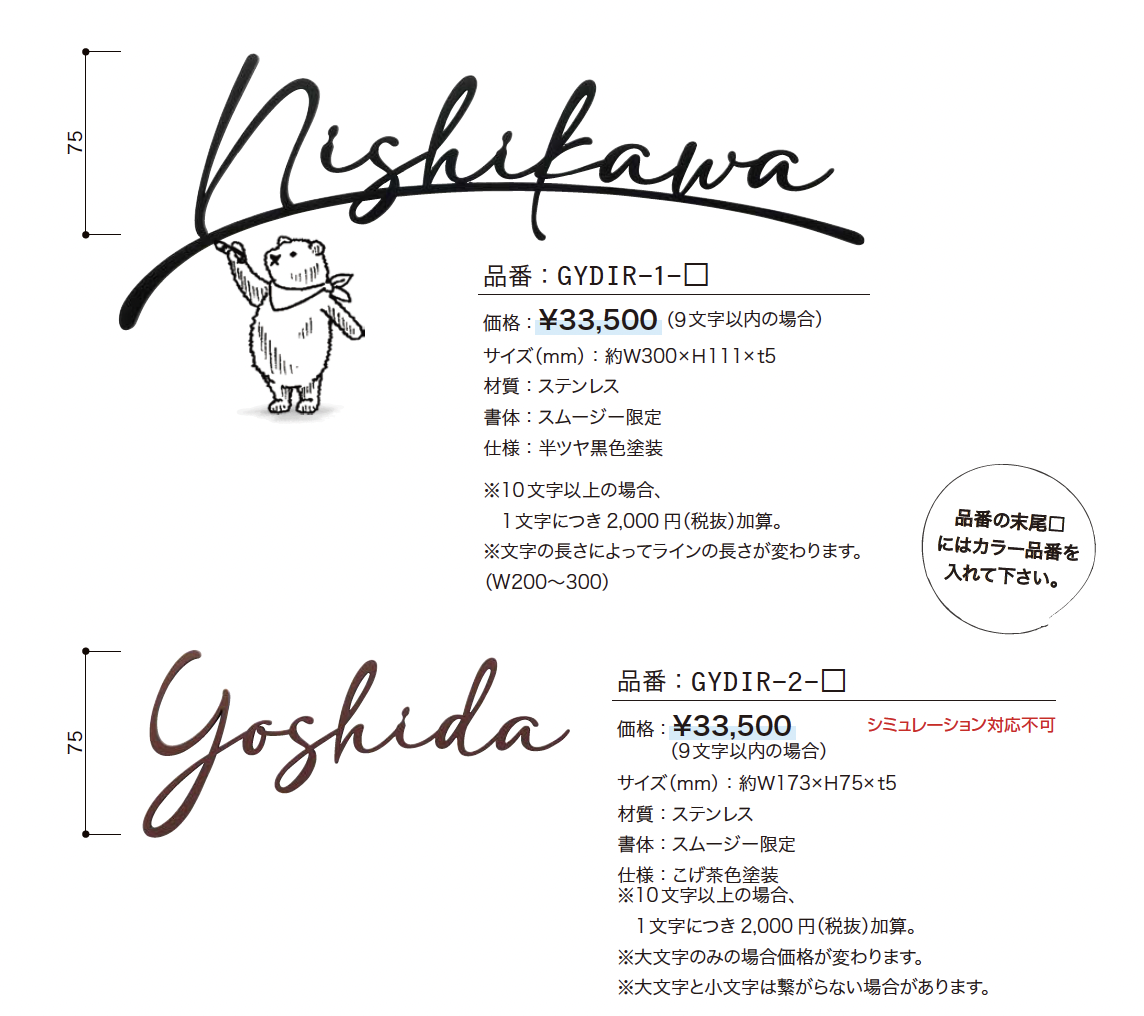 75
Nishikawa
品番：GYDIR-1-□
価格：¥33,500（9文字以内の場合）
サイズ（mm）：約W300×H111×t5
材質：ステンレス
書体：スムージー限定
仕様：半ツヤ黒色塗装
※10文字以上の場合、
1文字につき2,000円（税抜）加算。
※文字の長さによってラインの長さが変わります。
（W200～300）
品番の末尾□
にはカラー品番を
入れて下さい。
75
Yoshida
品番：GYDIR-2-□
価格：¥33,500 シミュレーション対応不可
（9文字以内の場合）
サイズ（mm）：約W173×H75×t5
材質：ステンレス
書体：スムージー限定
仕様：こげ茶色塗装
※10文字以上の場合、
1文字につき2,000円（税抜）加算。
※大文字のみの場合価格が変わります。
※大文字と小文字は繋がらない場合があります。